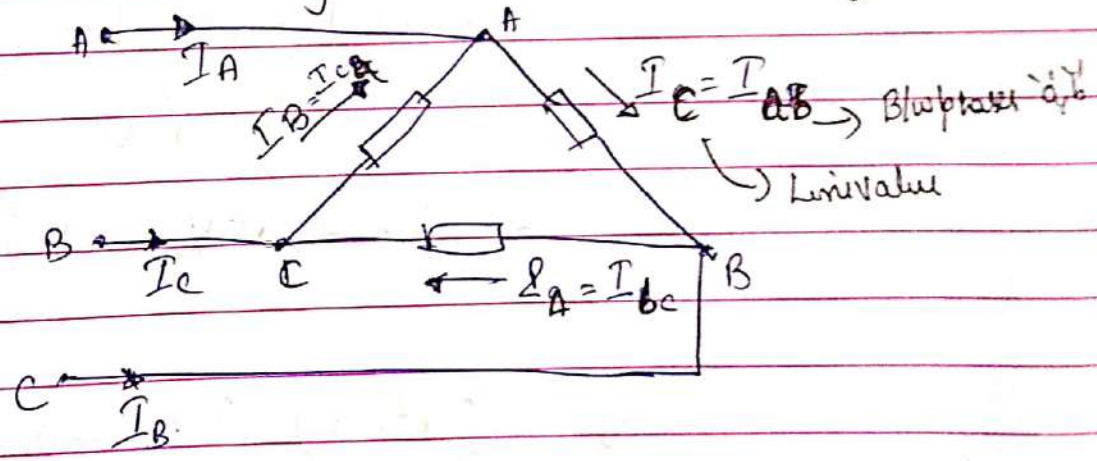 A I_A A
I_B = I_ca I_C = I_ab → B/w phases 'a,b'
→ Line value
B I_C C I_A = I_bc B
C I_B